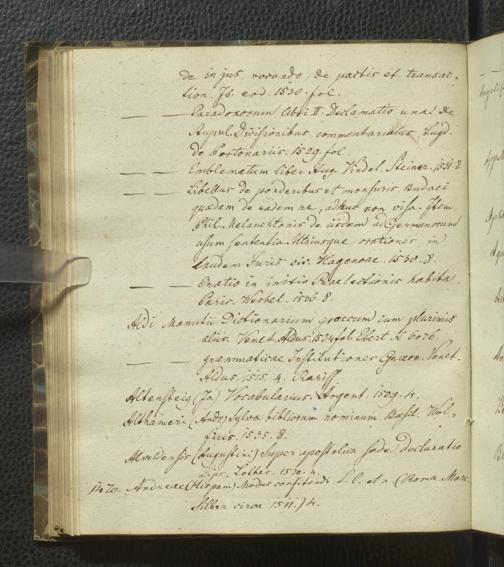 de in jus vocando. de pactis et transac-
tion. Ib. eod. 1530. fol.
— — Paradoxorum libri II. Declamatio una. De
stupul. Divisionibus commentariolus. Lugd.
de Portonariis. 1529. fol.
— — Emblematum liber. Aug. Vindel. Steiner. 1531. 8.
— — Libellus de ponderibus et mensuris Budaei
quaedam de eadem re, adhuc non visa. Item
Phil. Melanchtonis de iisdem ad Germanorum
usum sententia. Utriusque orationes in
laudem Juris civ. Hagenoae. 1530. 8.
— — Oratio in initio Praelectionis habita.
Paris. Wechel. 1536. 8.
Aldi Manutii Dictionarium graecum cum plurimis
aliis. Venet. Aldus. 1524 fol. Ebert I. 6076.
— — grammaticae Institutiones Graecae. Venet.
Aldus. 1515. 4. Rariss.
Altensteig (Jo.) Vocabularius. Argent. 1509. 4.
Althameri (Andr.) Sylva biblicorum nominum. Basil. Wol-
fius. 1535. 8.
Alveldensis (Augustini) Super apostolica sede declaratio
Lips. Lotther. 1520. 4.
1470. Andreae (Hispani) Modus confitendi. S. l. et a. (Roma. Marc.
Silber circa 1511.) 4.